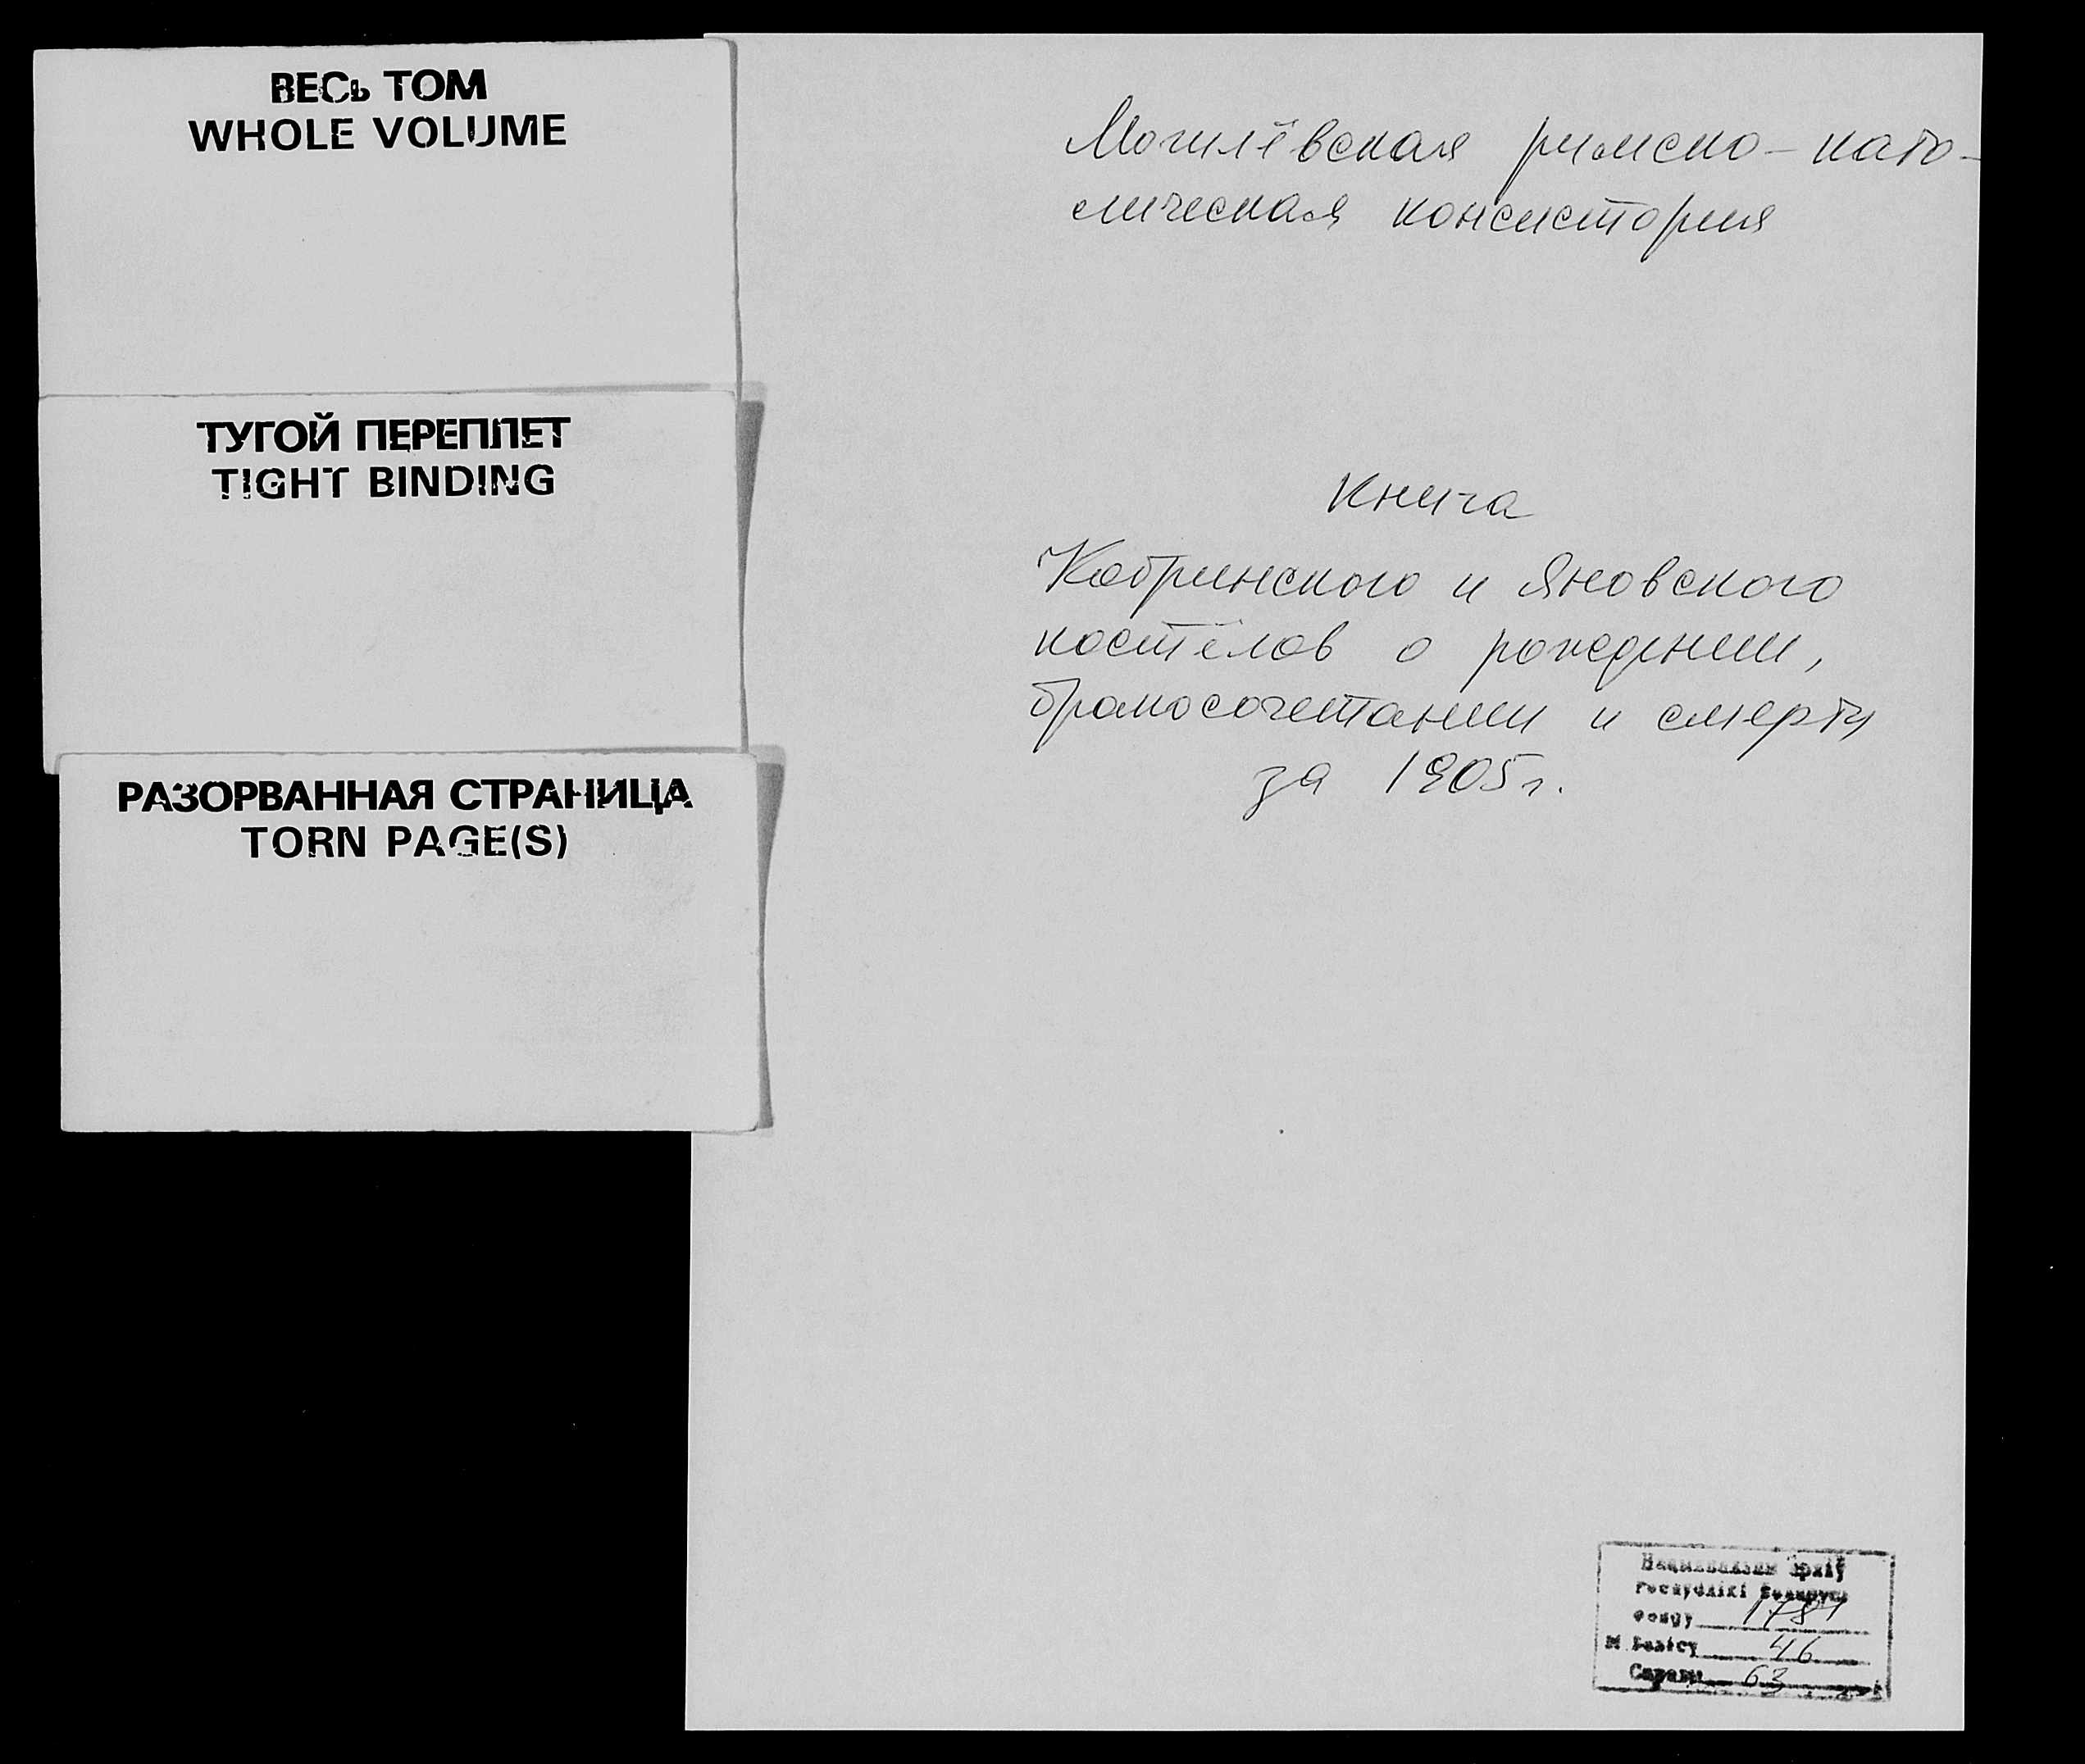 ВЕСЬ ТОМ
WHOLE VOLUME
ТУГОЙ ПЕРЕПЛЕТ
TIGHT BINDING
РАЗОРВАННАЯ СТРАНИЦА
TORN PAGE(S)
Могилёвская римско-като-
лическая консистория
Книга
Кобринского и Яновского
костёлов о рождении,
бракосочетании и смерти
за 1905г.
Нацыянальны архіў
Рэспублікі Беларусь
Фонду 1781
№ Вопісу 46
Справы 63